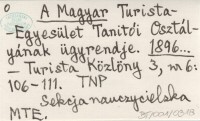 A Magyar Turista-
-Egyesület Tanítói Osztál-
yának ügyrendje. 1896...
- Turista Közlöny 3, nr 6:
106-111. TNP
Sekcja nauczycielska
MTE.